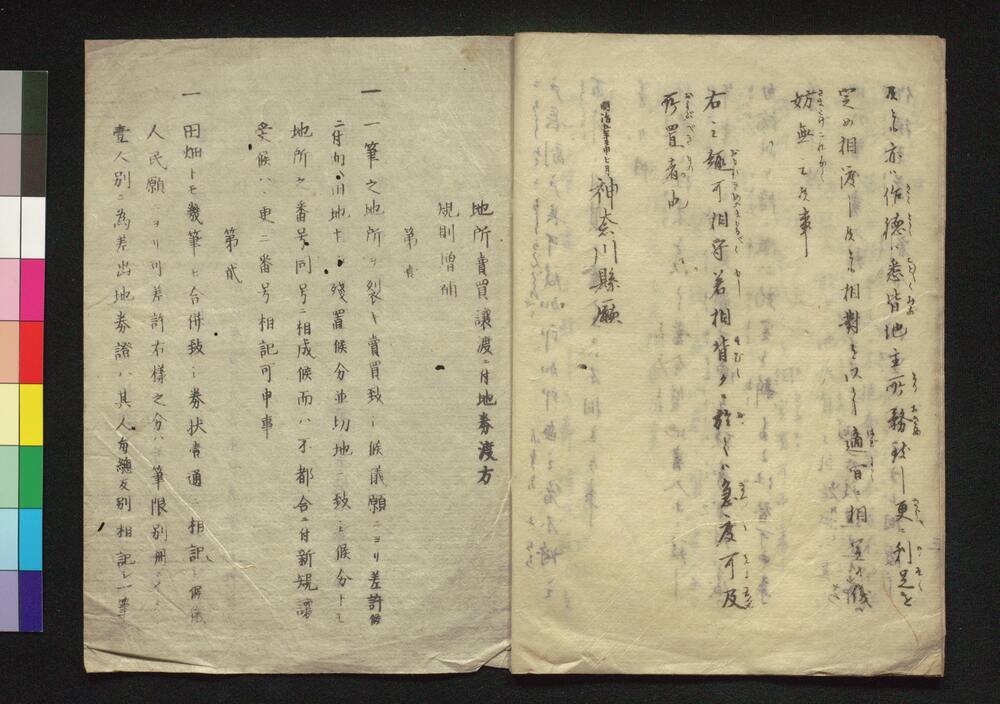 及ヒ亦ハ作德ハ悉皆地主所務致シ更ニ利足を
定め相渡し候は相對を以て適宜ニ相定候儀ハ
妨無之候事
右之趣可相守若相背クニ於てハ急度可及
所置者也
明治五壬申七月 神奈川縣廳
地所賣買讓渡ニ付地券渡方
規則增補
第壹
一 一筆之地所ヲ裂キ賣買致シ候儀願ニヨリ差許候
ニ付旧地主ニ殘置候分並切地ニ致シ候分トモ
地所之番号同号ニ相成候而ハ不都合ニ付新規讓
受候ハ更ニ番号相記可申事
第貳
一 田畑トモ幾筆ヒ合併致シ券状壹通ニ相記シ度
人民願ニヨリ可差許右様之分ハ筆限別冊ニ
壹人別ニ為差出地券證ハ其人每總反別相記シ一筆